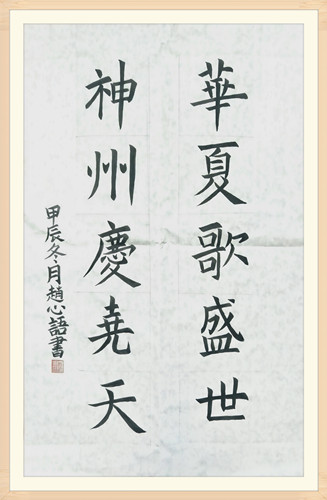 華夏歌盛世
神州慶堯天
甲辰冬月趙心語書